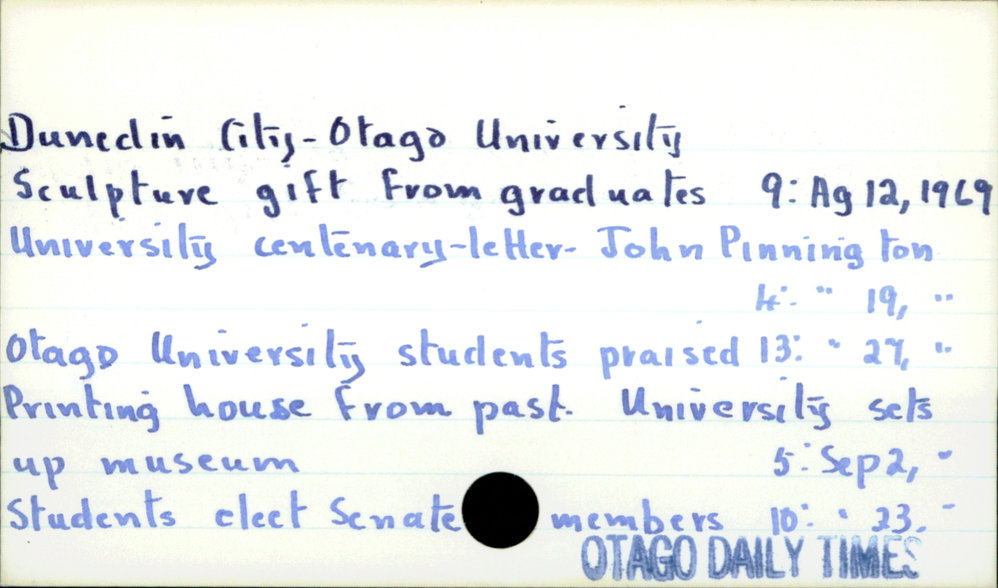 Dunedin City - Otago University
Sculpture gift from graduates 9: Ag 12, 1969
University centenary - letter - John Pinnington
4: " 19, "
Otago University students praised 13: " 27, "
Printing house from past. University sets
up museum 5: Sep 2, "
Students elect Senate members 10: " 23. "
OTAGO DAILY TIMES